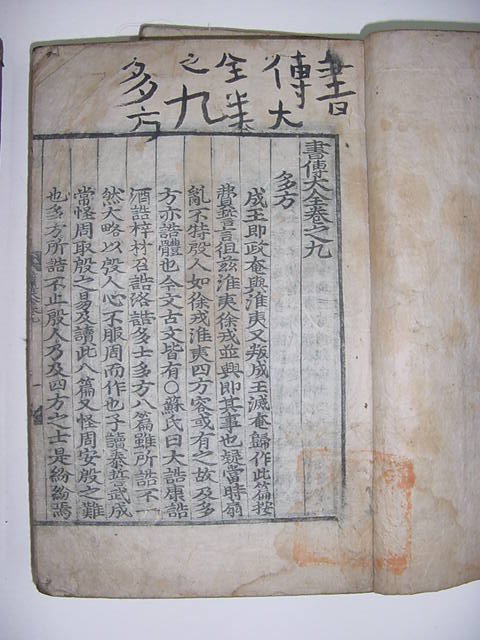 書
傳大
全卷
之九
多方
書傳大全卷之九
多方
成王即政奄與淮夷又叛成王滅奄歸作此篇按
費誓言徂兹淮夷徐戎並興即其事也疑當時扇
亂不特殷人如徐戎淮夷四方容或有之故及多
方亦誥體也今文古文皆有○蘇氏曰大誥康誥
酒誥梓材召誥洛誥多士多方八篇雖所誥不一
然大略以殷人心不服周而作也予讀泰誓武成
常怪周取殷之易及讀此八篇又怪周安殷之難
也多方所誥不止殷人乃及四方之士是紛紛焉